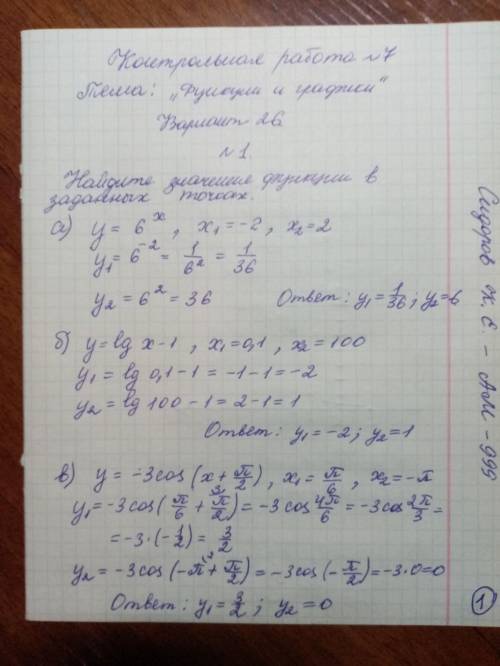 Контрольная работа №7
Тема: „Функции и графики"
Вариант 26
№1.
Найдите значение функции в
заданных точках.
а) y = 6^x, x₁ = -2, x₂ = 2
y₁ = 6^-2 = 1/6² = 1/36
y₂ = 6² = 36 Ответ: y₁ = 1/36; y₂ = 6
б) y = lg x - 1, x₁ = 0,1, x₂ = 100
y₁ = lg 0,1 - 1 = -1 - 1 = -2
y₂ = lg 100 - 1 = 2 - 1 = 1
Ответ: y₁ = -2; y₂ = 1
в) y = -3cos(x + π/2), x₁ = π/6, x₂ = -π
y₁ = -3cos(π/6 + ³⁾π/2) = -3cos 4π/6 = -3cos 2π/3 =
= -3·(-1/2) = 3/2
y₂ = -3cos(-π²⁾ + π/2) = -3cos(-π/2) = -3·0 = 0
Ответ: y₁ = 3/2; y₂ = 0
1
Сидоров К. С. - АМ - 999